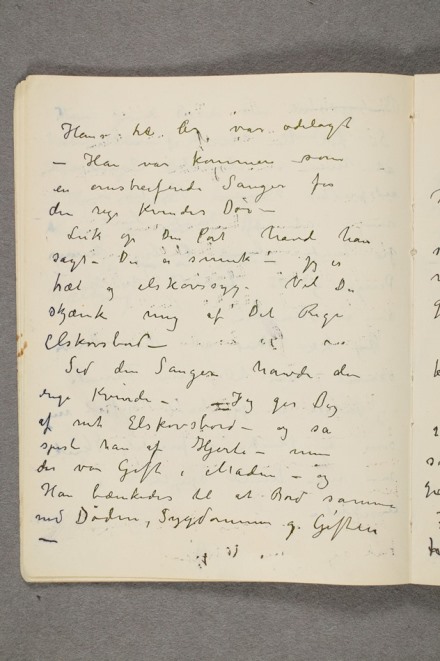 Hans liv var ødelagt
– Han var kommen som
en omstreifende Sanger for
den rige Kvindes Dør –
Luk op Din Port havd han
sagt – Du er smuk – jeg er
træt og elskovssyg. Vil Du
skjænk mig af Det Rige
Elskovsbord –
Sid den Sanger havde den
rige Kvinde – Jeg ger Dig
af mit Elskovsbord – og så
spiste han af Hjerte – men
der var Gift i Maden – og
Han bænkedes til et Bord sammen
med Døden, Sygdommen og Giften
–